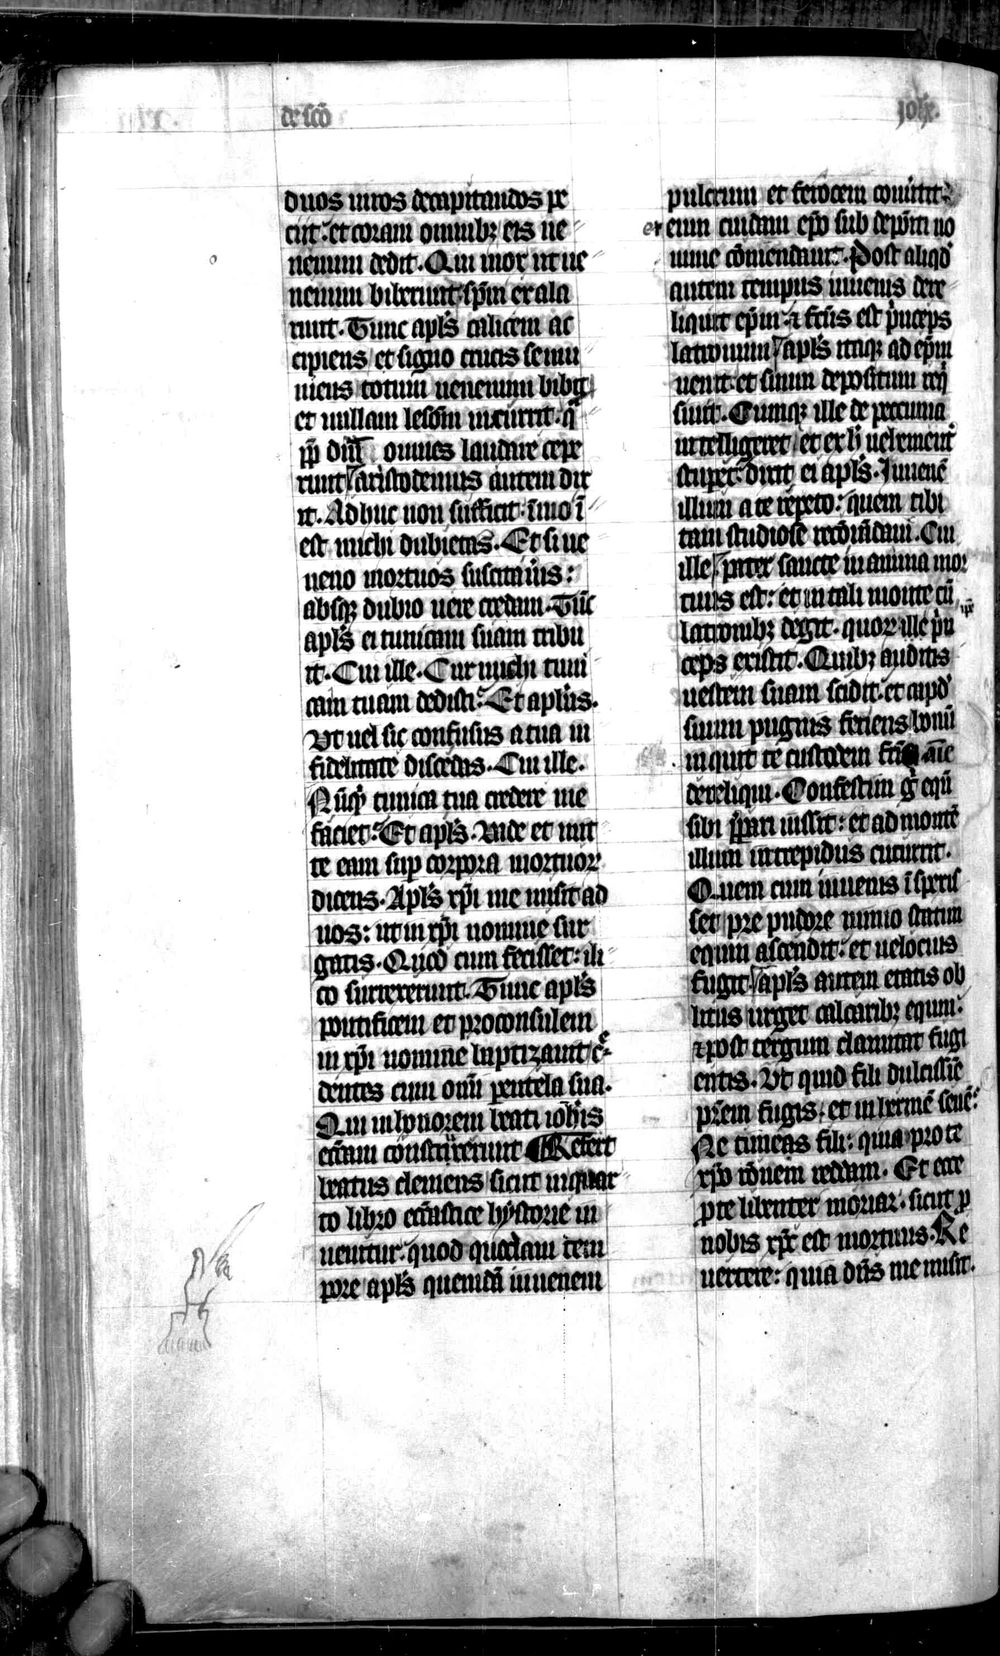 de scō
joh̄e.
duos viros decapitandos pe
ciit. et coram omnibꝫ eis ve
nenum dedit. Qui mox ut ve
nenum biberunt sp̄m exala
runt. Tunc apl̄s calicem ac
cipiens et signo crucis se mu
niens totum venenum bibit
et nullam lesōm incurrit. q̄
ꝓp̄ dn̄m omnes laudare cepe
runt aristodemus autem dix
it. Adhuc non sufficit īmo ī
est michi dubietas. Et si ve
neno mortuos suscitav̄is:
absqꝫ dubio vere credam. Tūc
apl̄s ei tunicam suam tribu
it. Cui ille. Cur michi tuni
cam tuam dedisti? Et apl̄us.
Vt vel sic confusus a tua in
fidelitate discedas. Cui ille.
Nūq̄ tunica tua credere me
faciet? Et apl̄s. Vade et mit
te eam sup̄ corpora mortuoꝝ
dicens. Apl̄s xp̄i me misit ad
vos: ut in xp̄i nomine sur
gatis. Qūod cum fecisset: ili
co surrexerunt. Tunc apl̄s
pontificem et proconsulem
in xp̄i nomine baptizavit c̄e
dentes cum om̄i ꝑentela sua.
Qui in honorem beati ioh̄is
ecc̄am cōnstruxerunt ¶Refert
beatus clemens sicut in quar
to libro ecc̄astice hystorie in
venitur. quod quodam tem
pore apl̄s quemdā iuvenem
pulcrum et ferocem cōvertit
et eum cuidam ep̄o sub dep̄oīti no
mine cōmendavit. Post aliqd̄
autem tempus iuvenis dere
liquit ep̄m ⁊ fc̄us est p̄nceps
latronum apl̄s itaqꝫ ad ep̄m
venit et suum depositum req̄
sivit. Cumqꝫ ille de peccunia
intelligeret et ex h̄ vehement̄
stuperet dixit ei apl̄s. Iuvenē
illum a te repeto: quem tibi
tam studiose recōmēdavi. Cui
ille pater sancte in anima mor
tuus est: et in tali monte cū
latronibꝫ degit. quoꝝ ip̄e ille p̄n
ceps existit. Quibꝫ auditis
vestem suam scidit. et capd̄
suum pugnis feriens bonū
inquit te custodem fr̄is aīe
dereliqui. Confestim g̊ equū
sibi p̄pari iussit: et ad montē
illum intrepidus cucurrit.
Quem cum iuvenis īspexis
set pre pudore nimio statim
equm ascendit. et velocius
fugit apl̄s autem etatis ob
litus urget calcaribꝫ equm
⁊ post tergum clamitat fugi
entis. Vt quid fili dulcissīe
pr̄em fugis. et inhermē senē?
Ne timeas fili: quia pro te
xp̄o rōnem reddam. Et ecce
pro te libenter moriar. sicut ꝓ
nobis xp̄c est mortuus. Re
vertere: quia dn̄s me misit.